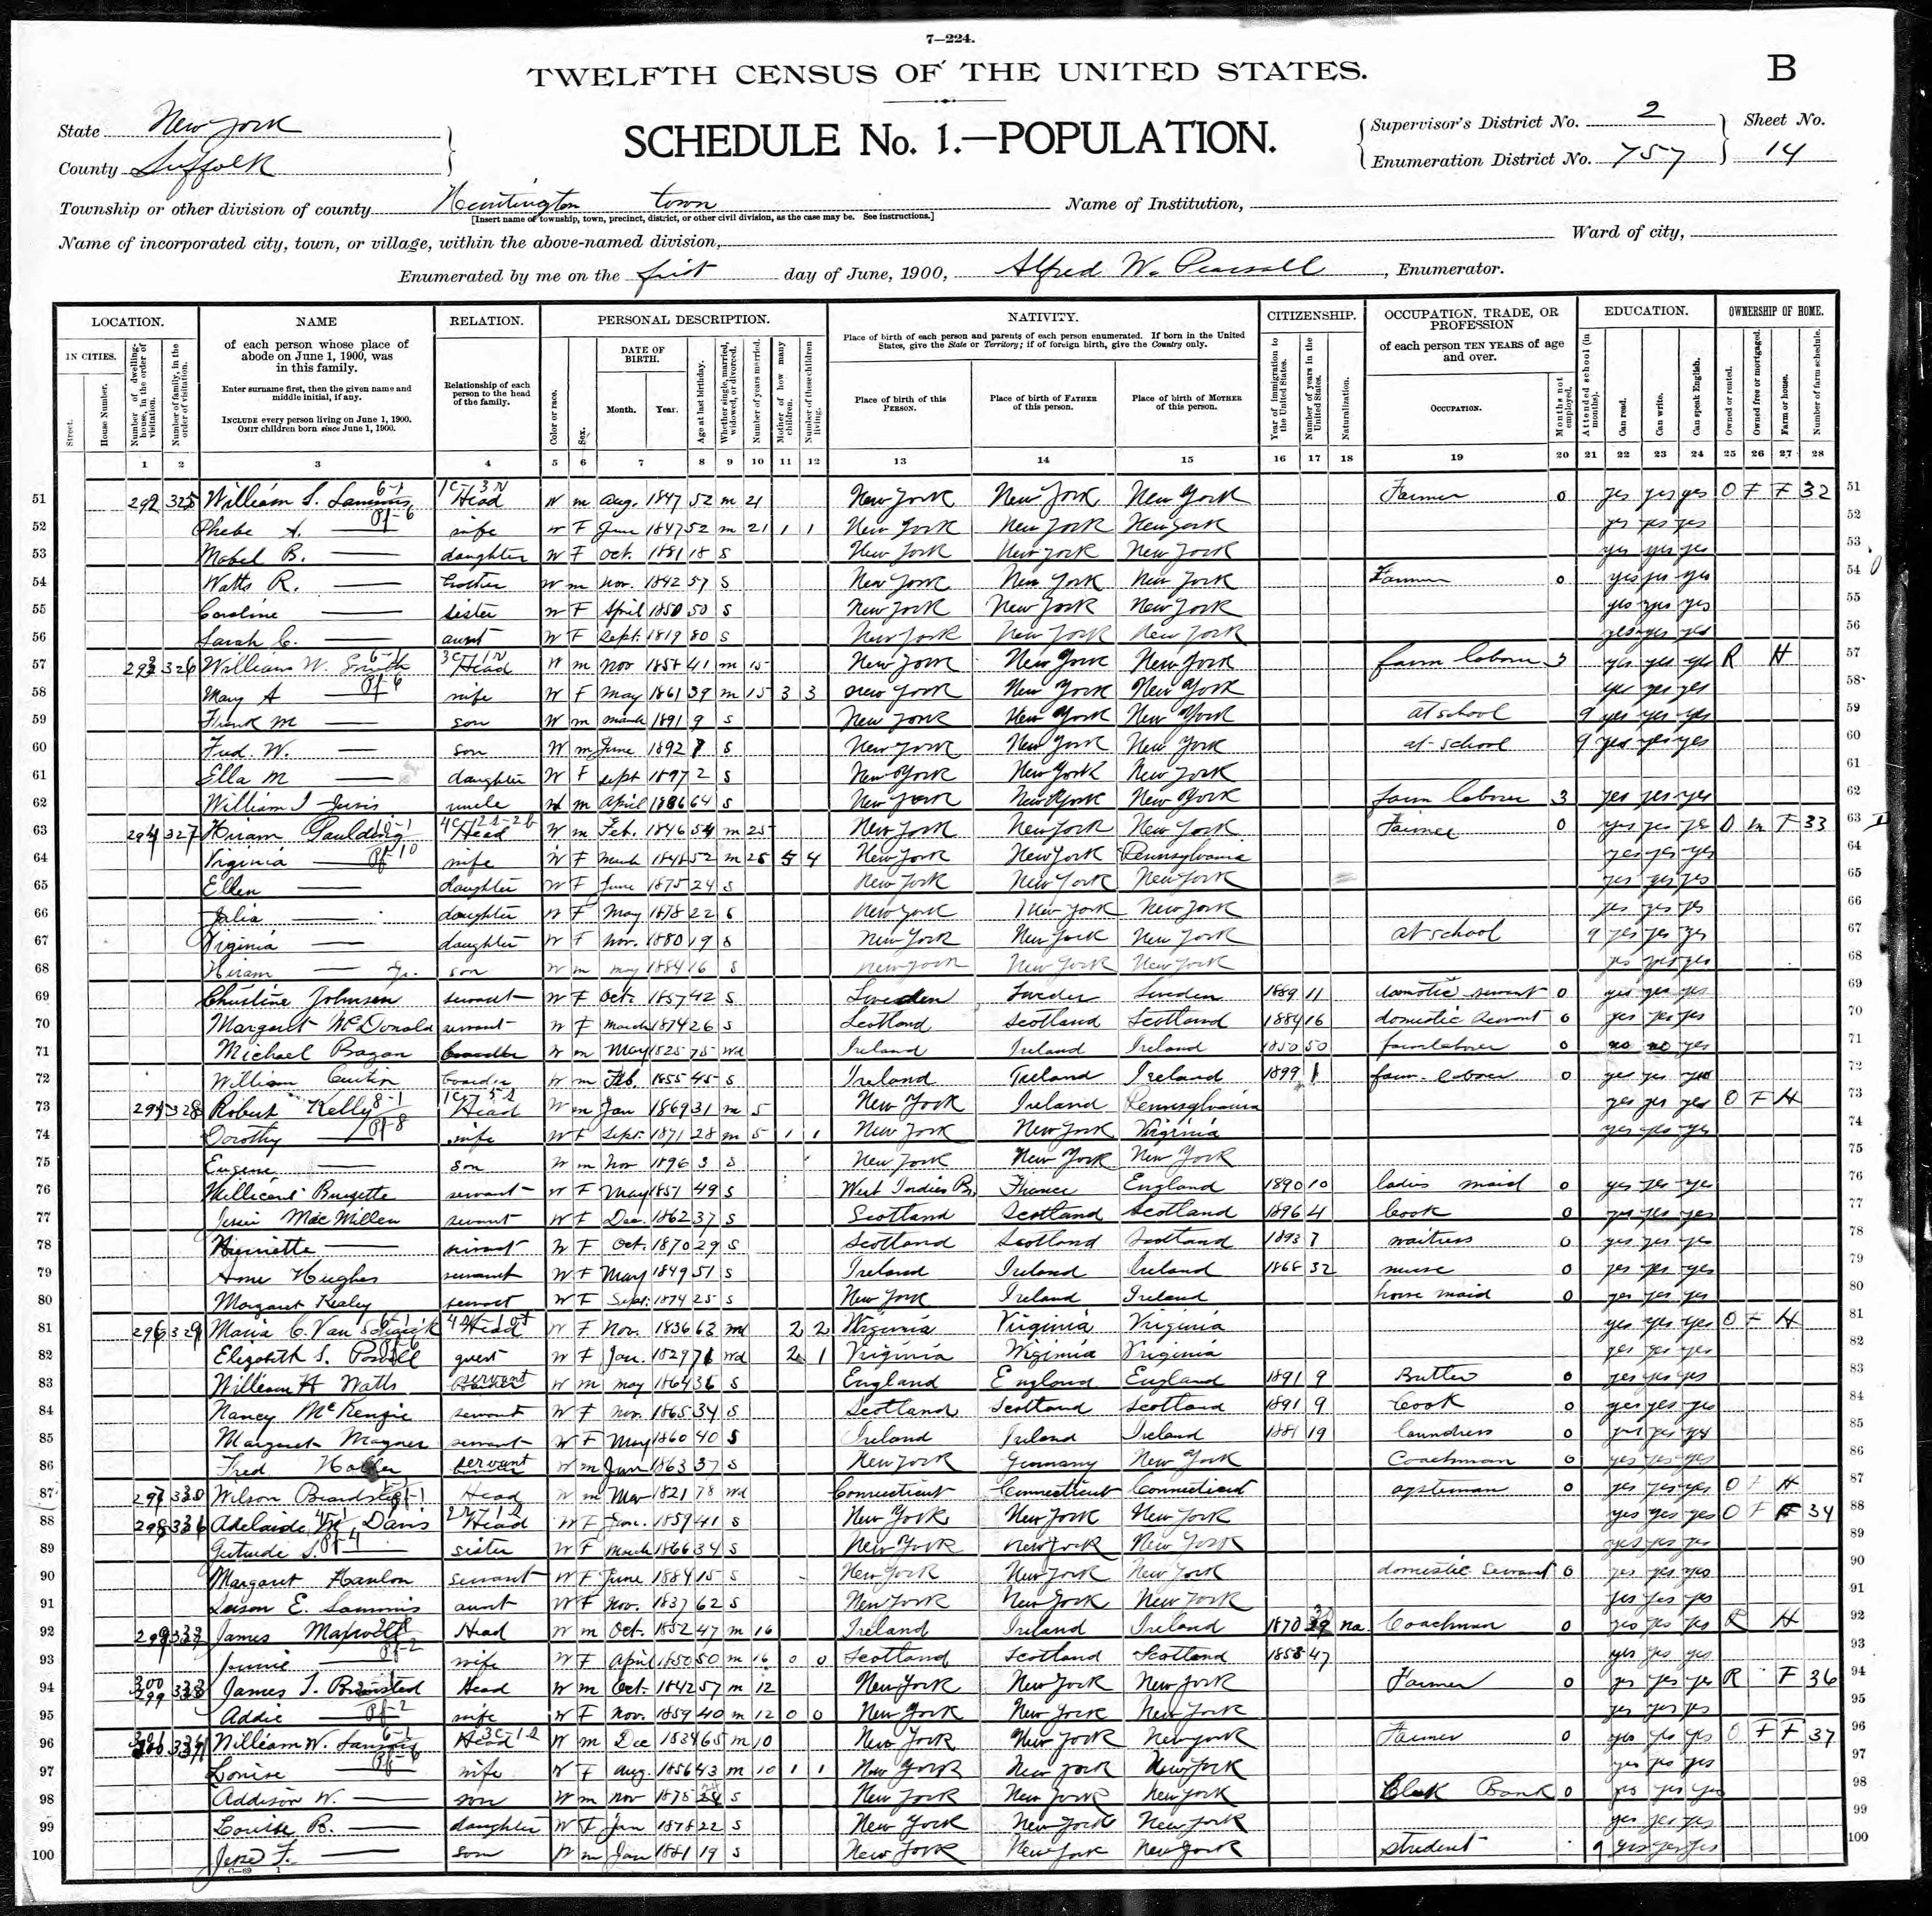 7—224.
TWELFTH CENSUS OF THE UNITED STATES.
B
State New York
County Suffolk
SCHEDULE No. 1.—POPULATION.
Supervisor's District No. 2
Enumeration District No. 757
Sheet No.
14
Township or other division of county Huntington town
[Insert name of township, town, precinct, district, or other civil division, as the case may be. See instructions.]
Name of Institution,
Name of incorporated city, town, or village, within the above-named division,
Ward of city,
Enumerated by me on the first day of June, 1900, Alfred W. Pearsall, Enumerator.
LOCATION.
IN CITIES.
Street.
House Number.
Number of dwelling-house, in the order of visitation.
Number of family, in the order of visitation.
NAME
of each person whose place of abode on June 1, 1900, was in this family.
Enter surname first, then the given name and middle initial, if any.
INCLUDE every person living on June 1, 1900.
OMIT children born since June 1, 1900.
RELATION.
Relationship of each person to the head of the family.
PERSONAL DESCRIPTION.
Color or race.
Sex.
DATE OF BIRTH.
Month.
Year.
Age at last birthday.
Whether single, married, widowed, or divorced.
Number of years married.
Mother of how many children.
Number of these children living.
NATIVITY.
Place of birth of each person and parents of each person enumerated. If born in the United States, give the State or Territory; if of foreign birth, give the Country only.
Place of birth of this PERSON.
Place of birth of FATHER of this person.
Place of birth of MOTHER of this person.
CITIZENSHIP.
Year of immigration to the United States.
Number of years in the United States.
Naturalization.
OCCUPATION, TRADE, OR PROFESSION
of each person TEN YEARS of age and over.
OCCUPATION.
Months not employed.
EDUCATION.
Attended school (in months).
Can read.
Can write.
Can speak English.
OWNERSHIP OF HOME.
Owned or rented.
Owned free or mortgaged.
Farm or house.
Number of farm schedule.
1 2 3 4 5 6 7 8 9 10 11 12 13 14 15 16 17 18 19 20 21 22 23 24 25 26 27 28
51 292 325 William S. Sammis Head W m Aug. 1847 52 m 21 New York New York New York Farmer 0 yes yes yes O F F 32 51
52 Phebe A. wife W F June 1847 52 m 21 1 1 New York New York New York yes yes yes 52
53 Mabel B. daughter W F Oct. 1881 18 S New York New York New York yes yes yes 53
54 Watts R. brother W m Nov. 1842 57 S New York New York New York Farmer 0 yes yes yes 54
55 Caroline sister W F April 1850 50 S New York New York New York yes yes yes 55
56 Sarah C. aunt W F Sept. 1819 80 S New York New York New York yes yes yes 56
57 293 326 William W. Smith Head W m Nov 1858 41 m 15 New York New York New York farm laborer 3 yes yes yes R H 57
58 Mary A wife W F May 1861 39 m 15 3 3 New York New York New York yes yes yes 58
59 Frank M son W m March 1891 9 S New York New York New York at school 9 yes yes yes 59
60 Fred. W. son W m June 1892 7 S New York New York New York at school 9 yes yes yes 60
61 Ella M daughter W F Sept 1897 2 S New York New York New York 61
62 William J uncle W m April 1836 64 S New York New York New York farm laborer 3 yes yes yes 62
63 294 327 Hiram Paulding Head W m Feb. 1846 54 m 25 New York New York New York Farmer 0 yes yes yes O m F 33 63
64 Virginia wife W F March 1848 52 m 25 5 4 New York New York Pennsylvania yes yes yes 64
65 Ellen daughter W F June 1875 24 S New York New York New York yes yes yes 65
66 Julia daughter W F May 1878 22 S New York New York New York yes yes yes 66
67 Virginia daughter W F Nov. 1880 19 S New York New York New York at school 9 yes yes yes 67
68 Hiram Jr. son W m May 1884 16 S New York New York New York yes yes yes 68
69 Christine Johnson servant W F Oct. 1857 42 S Sweden Sweden Sweden 1889 11 domestic servant 0 yes yes yes 69
70 Margaret McDonald servant W F March 1874 26 S Scotland Scotland Scotland 1884 16 domestic servant 0 yes yes yes 70
71 Michael Bagan boarder W m May 1825 75 Wd Ireland Ireland Ireland 1850 50 farm laborer 0 no no yes 71
72 William Curtin boarder W m Feb. 1855 45 S Ireland Ireland Ireland 1899 1 farm laborer 0 yes yes yes 72
73 295 328 Robert Kelly Head W m Jan 1869 31 m 5 New York Ireland Pennsylvania yes yes yes O F H 73
74 Dorothy wife W F Sept. 1871 28 m 5 1 1 New York New York Virginia yes yes yes 74
75 Eugene son W m Nov 1896 3 S New York New York New York 75
76 Millicent Burgette servant W F May 1851 49 S West Indies Br. France England 1890 10 ladies maid 0 yes yes yes 76
77 Jessie MacMillen servant W F Dec. 1862 37 S Scotland Scotland Scotland 1896 4 Cook 0 yes yes yes 77
78 Henriette servant W F Oct. 1870 29 S Scotland Scotland Scotland 1893 7 waitress 0 yes yes yes 78
79 Anne Hughes servant W F May 1849 51 S Ireland Ireland Ireland 1868 32 nurse 0 yes yes yes 79
80 Margaret Kealey servant W F Sept. 1874 25 S New York Ireland Ireland house maid 0 yes yes yes 80
81 296 329 Maria C. Van Head W F Nov. 1836 63 Wd 2 2 Virginia Virginia Virginia yes yes yes O F H 81
82 Elizabeth S. Powell guest W F Jan. 1829 71 Wd 2 1 Virginia Virginia Virginia yes yes yes 82
83 William H Watts servant W m May 1864 36 S England England England 1891 9 Butler 0 yes yes yes 83
84 Nancy McKenzie servant W F Nov. 1865 34 S Scotland Scotland Scotland 1891 9 Cook 0 yes yes yes 84
85 Margaret Magner servant W F May 1860 40 S Ireland Ireland Ireland 1881 19 laundress 0 yes yes yes 85
86 Fred servant W m Jan 1863 37 S New York Germany New York Coachman 0 yes yes yes 86
87 297 330 Wilson Beardsley Head W m Mar 1821 78 Wd Connecticut Connecticut Connecticut oysterman 0 yes yes yes O F H 87
88 298 331 Adelaide M Davis Head W F Jan. 1859 41 S New York New York New York yes yes yes O F F 34 88
89 Gertrude S. sister W F March 1866 34 S New York New York New York yes yes yes 89
90 Margaret Hanlon servant W F June 1884 15 S New York New York New York domestic servant 0 yes yes yes 90
91 Susan E. Sammis aunt W F Nov. 1837 62 S New York New York New York yes yes yes 91
92 299 332 James Maxwell Head W m Oct. 1852 47 m 16 Ireland Ireland Ireland 1870 na Coachman 0 yes yes yes R H 92
93 Jennie wife W F April 1850 50 m 16 0 0 Scotland Scotland Scotland 1853 47 yes yes yes 93
94 300 333 James T. Head W m Oct. 1842 57 m 12 New York New York New York Farmer 0 yes yes yes R F 36 94
95 Addie wife W F Nov. 1859 40 m 12 0 0 New York New York New York yes yes yes 95
96 301 334 William W. Sammis Head W m Dec 1834 65 m 10 New York New York New York Farmer 0 yes yes yes O F F 37 96
97 Louise wife W F Aug. 1856 43 m 10 1 1 New York New York New York yes yes yes 97
98 Addison W. son W m Nov 1875 24 S New York New York New York Clerk Bank 0 yes yes yes 98
99 Louise B. daughter W F Jan 1878 22 S New York New York New York yes yes yes 99
100 F. son W m Jan 1881 19 S New York New York New York student 9 yes yes yes 100